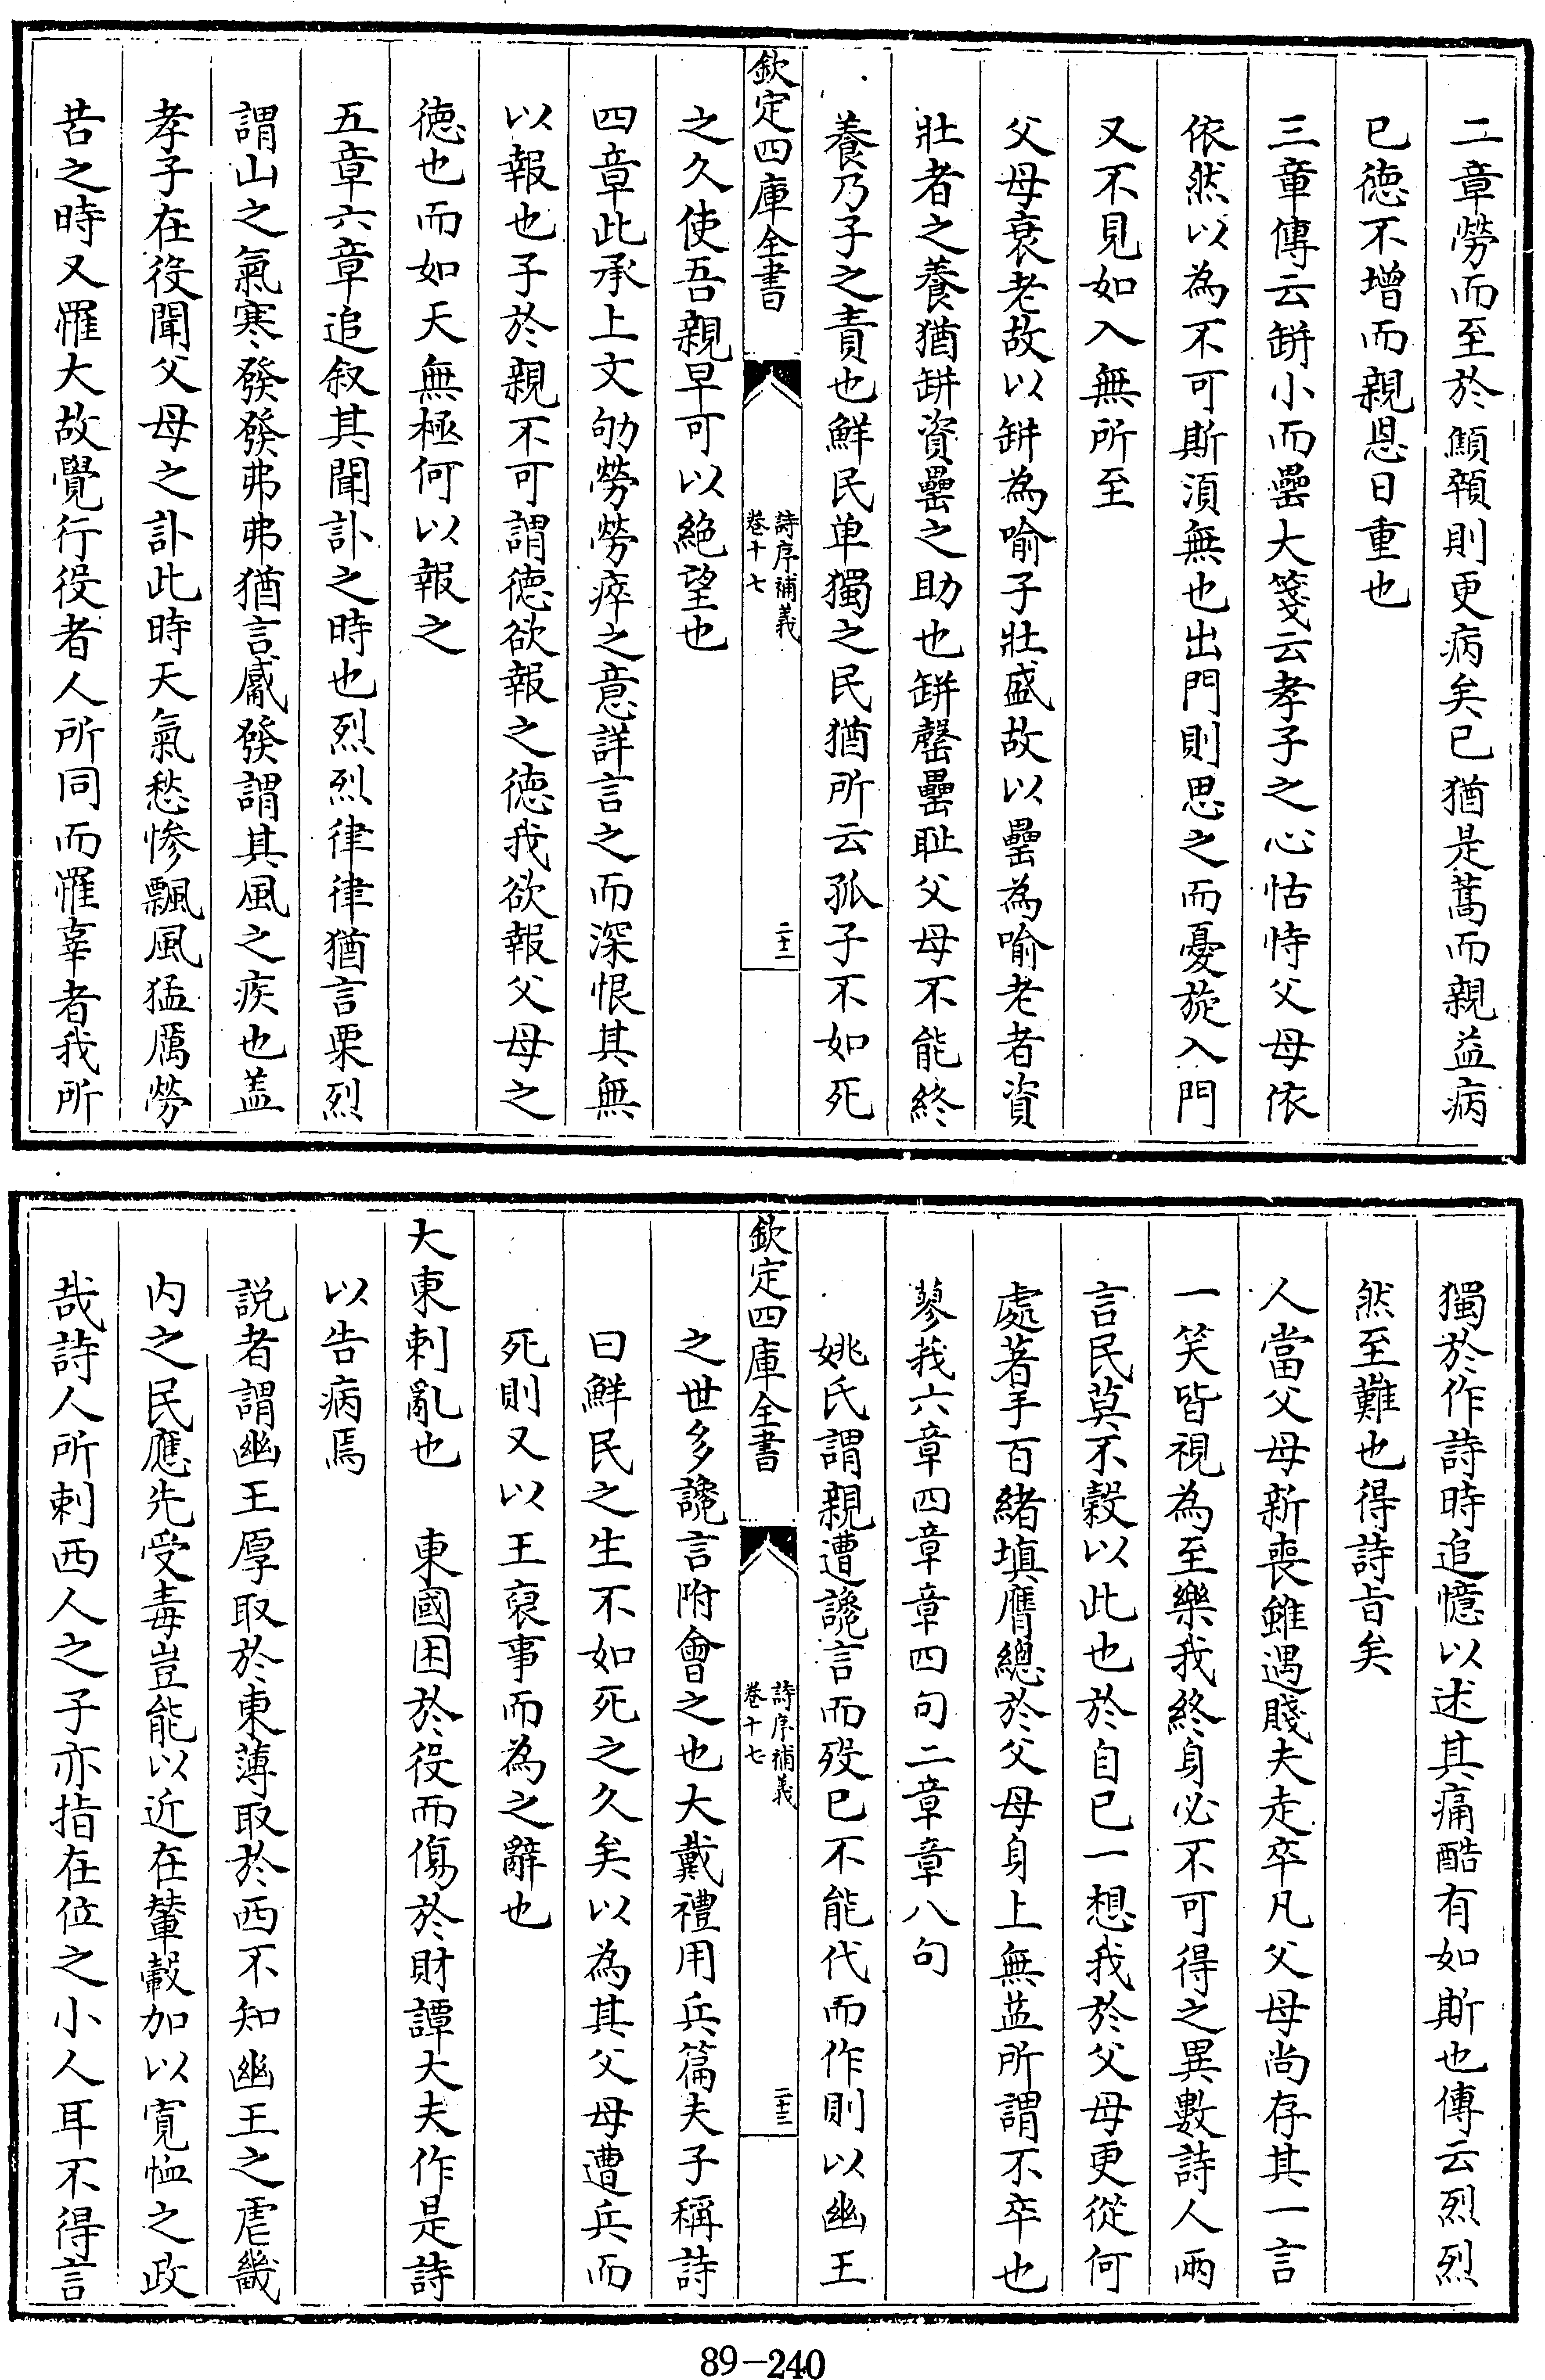 二章勞而至於顦顇則更病矣已猶是蒿而親益病
已德不增而親恩日重也
三章傳云缾小而罍大箋云孝子之心怙恃父母依
依然以為不可斯湏無也出門則思之而憂旋入門
又不見如入無所至
父母衰老故以缾為喻子壯盛故以罍為喻老者資
壯者之養猶缾資罍之助也缾罄罍耻父母不能終
養乃子之責也鮮民单獨之民猶所云孤子不如死
欽定四庫全書
詩序補義
卷十七
二十二
之久使吾親早可以絶望也
四章此承上文劬勞勞瘁之意詳言之而深恨其無
以報也子於親不可謂德欲報之德我欲報父母之
德也而如天無極何以報之
五章六章追叙其聞訃之時也烈烈律律猶言栗烈
謂山之氣寒發發弗弗猶言觱發謂其風之疾也盖
孝子在役聞父母之訃此時天氣愁惨飄風猛厲勞
苦之時又罹大故覺行役者人所同而罹辜者我所
獨於作詩時追憶以述其痛酷有如斯也傳云烈烈
然至難也得詩旨矣
人當父母新喪雖遇賤夫走卒凡父母尚存其一言
一笑皆視為至樂我終身必不可得之異數詩人兩
言民莫不穀以此也於自已一想我於父母更從何
處著手百緒填膺總於父母身上無益所謂不卒也
蓼莪六章四章章四句二章章八句
姚氏謂親遭讒言而殁已不能代而作則以幽王
欽定四庫全書
詩序補義
卷十七
二十三
之世多讒言附會之也大戴禮用兵篇夫子稱詩
曰鮮民之生不如死之久矣以為其父母遭兵而
死則又以王裒事而為之辭也
大東刺亂也　東國困於役而傷於財譚大夫作是詩
以告病焉
説者謂幽王厚取於東薄取於西不知幽王之虐畿
内之民應先受毒豈能以近在輦轂加以寛恤之政
哉詩人所刺西人之子亦指在位之小人耳不得言
89-240